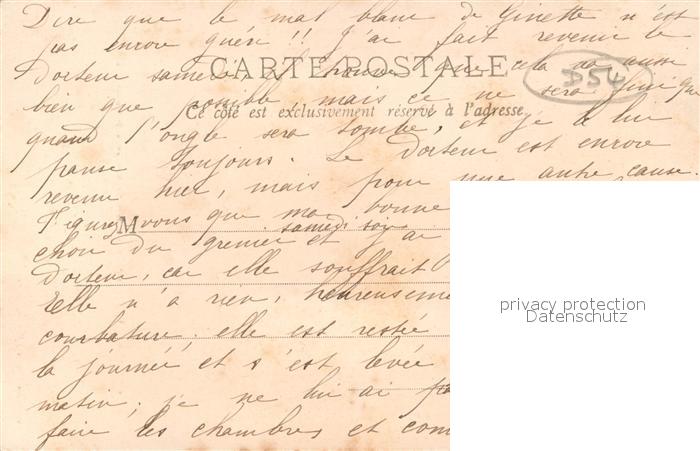 Dire que le mal blanc de Ginette n'est
pas encore guéri !! J'ai fait revenir le
CARTE POSTALE
D54
Docteur samedi, il trouve que cela va aussi
bien que possible, mais ce ne sera fini que
Ce côté est exclusivement réservé à l'adresse
quand l'ongle sera tombé, et je le lui
panse toujours. Le Docteur est encore
revenu hier, mais pour une autre cause.
Figurez vous que ma bonne
M
samedi soir
du grenier et j'ai
Docteur, car elle souffrait
Elle n'a rien, heureuseme
courbature. elle est restée
la journée et s'est levée
matin. je ne lui ai pa
faire les chambres et com
privacy protection
Datenschutz